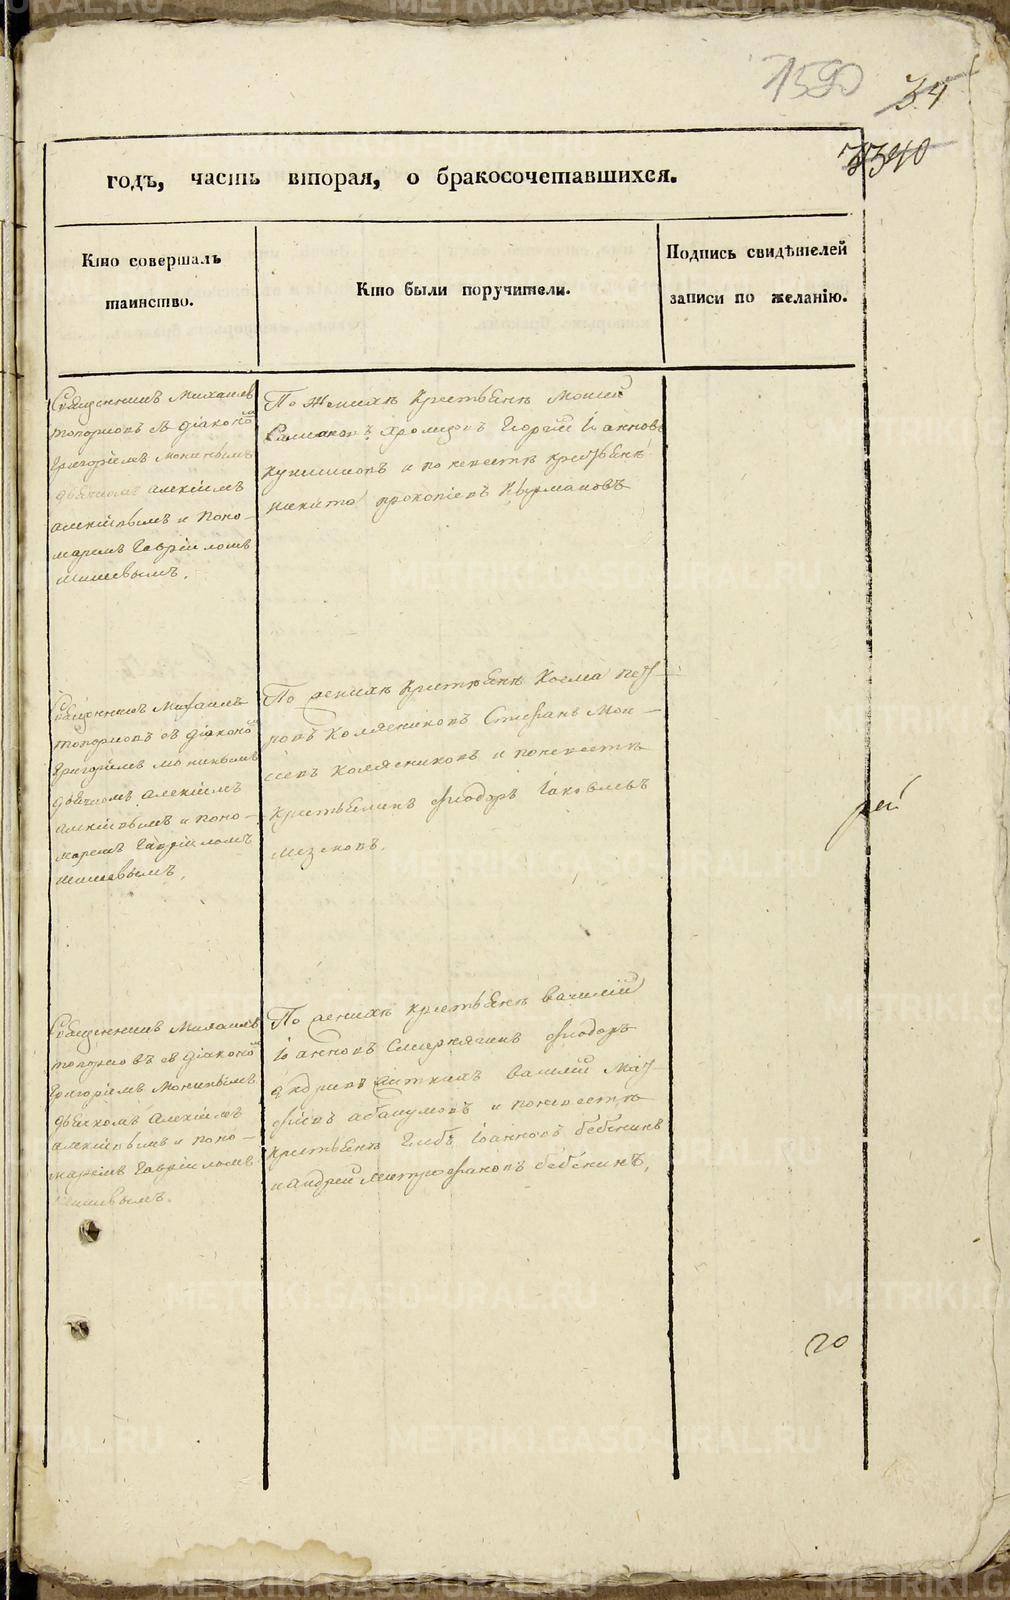 1590
34
3340
годъ, часть вторая, о бракосочетавшихся.
Кто совершалъ
таинство.
Кто были поручители.
Подпись свидѣтелей
записи по желанію.
Священникъ Михаилъ
топорковъ съ діаконо
Григоріемъ Мокинымъ
дьячкомъ алексіемъ
алексіевымъ и поно-
маремъ Гавріиломъ
По женихѣ Крестьяне Моисей
Хромцовъ Георгій Іаннов
и по невестѣ крестьяне
никита прокопіевъ
Священникъ Михаилъ
топорковъ съ діаконо
Григоріемъ мокинымъ
дьячкомъ алексіемъ
алексіевымъ и поно-
маремъ Гавріиломъ
По женихѣ Крестьяне Косма пет-
ровъ Колясниковъ Стефанъ Мои-
сіевъ Колясниковъ и по невестѣ
крестьянинъ Ѳіодоръ Іаковлевъ
Священникъ Михаилъ
топорковъ съ діаконо
Григоріемъ Мокинымъ
дьячкомъ алексіемъ
алексіевымъ и поно-
маремъ Гавріиломъ
По женихѣ крестьяне Василій
Іанновъ Ѳіодоръ
Василій Мат-
ѳіевъ абакумовъ и по невестѣ
крестьяне Глебъ Іанновъ бебенинъ
и андрей Митрофановъ бебенинъ.
рей
20
METRIKI.GASO-URAL.RU